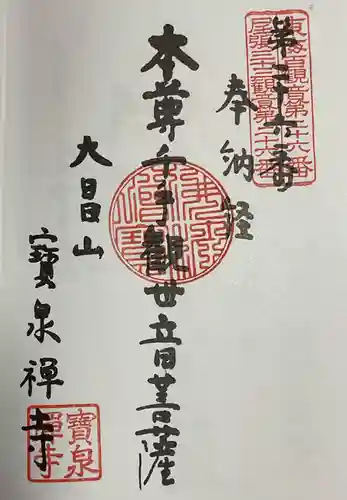 第二十六番
東海百観音第二十六番
尾張三十三観音第二十六番
奉納経
本尊千手觀世音菩薩
大昌山
寶泉禅寺
寶泉
禅寺